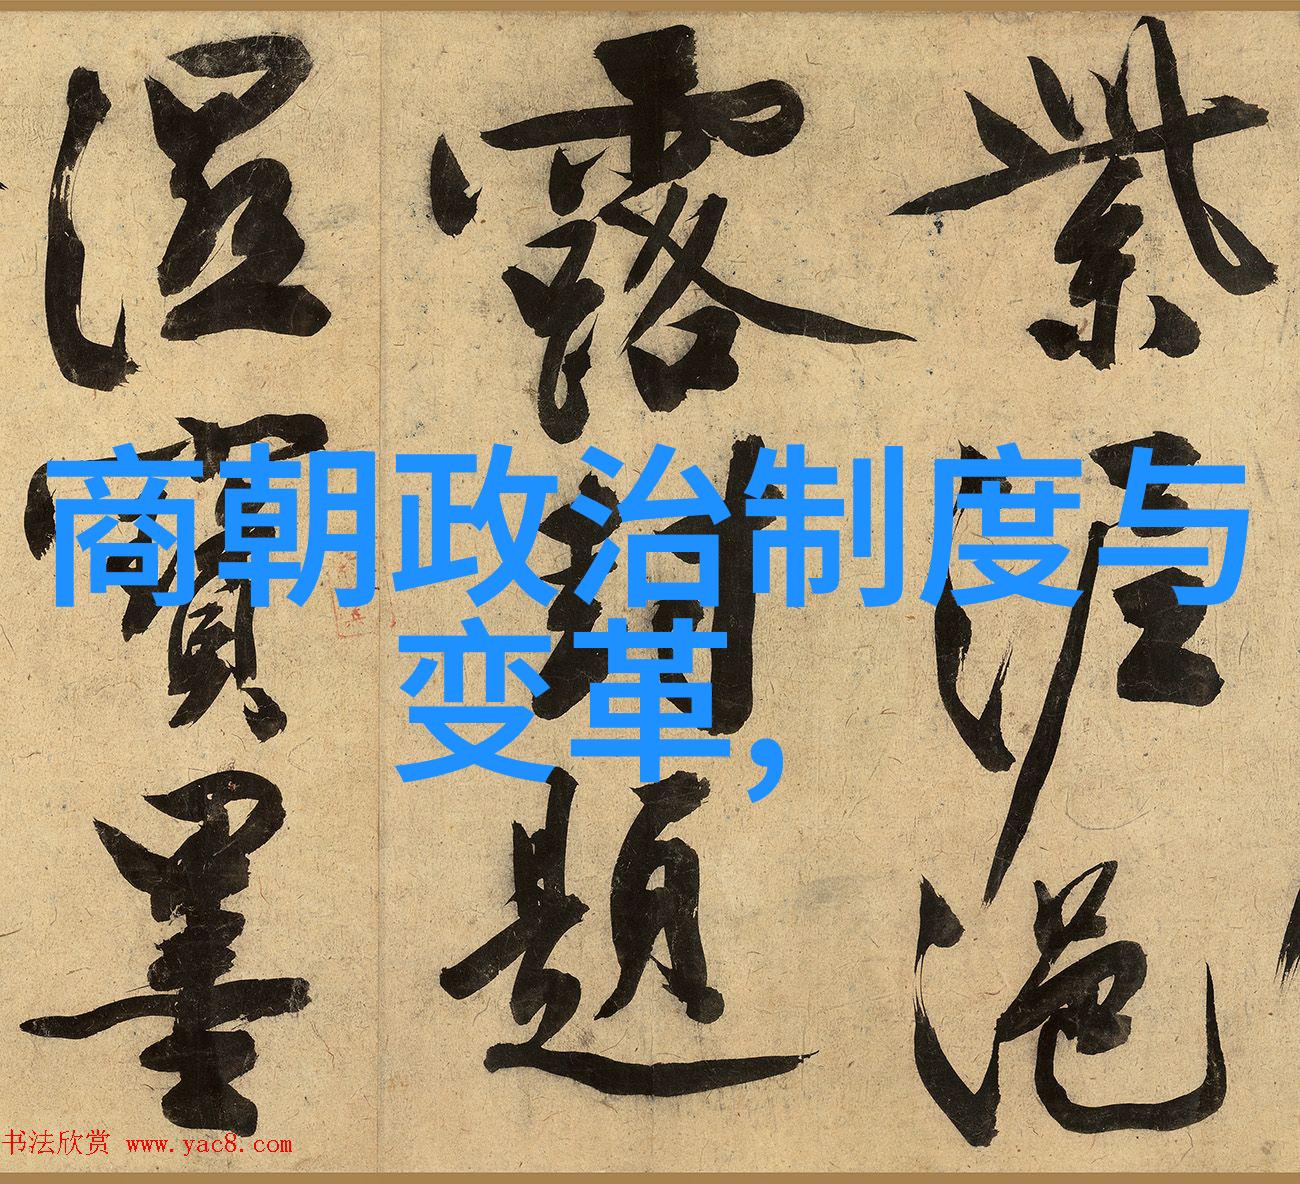 紫泥浥
露封題
濕寶墨
商朝政治制度与
变革,
书法欣赏 www.yac8.com